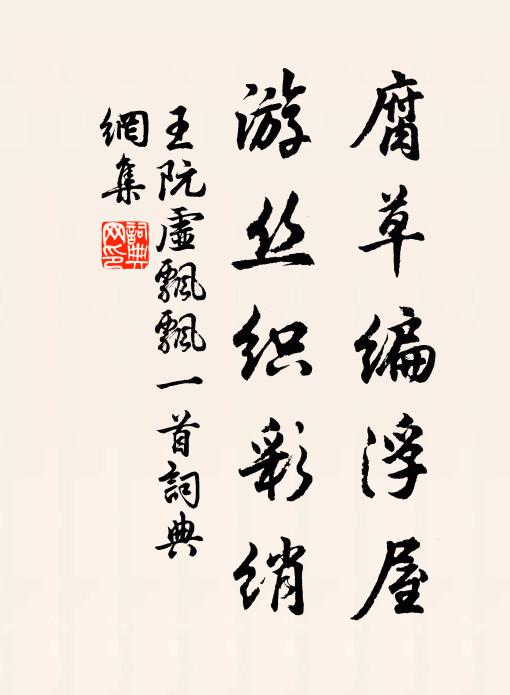 腐草编浮屋
游丝织彩绡
王阮虚飘飘一首詞典
網集
詞典网印